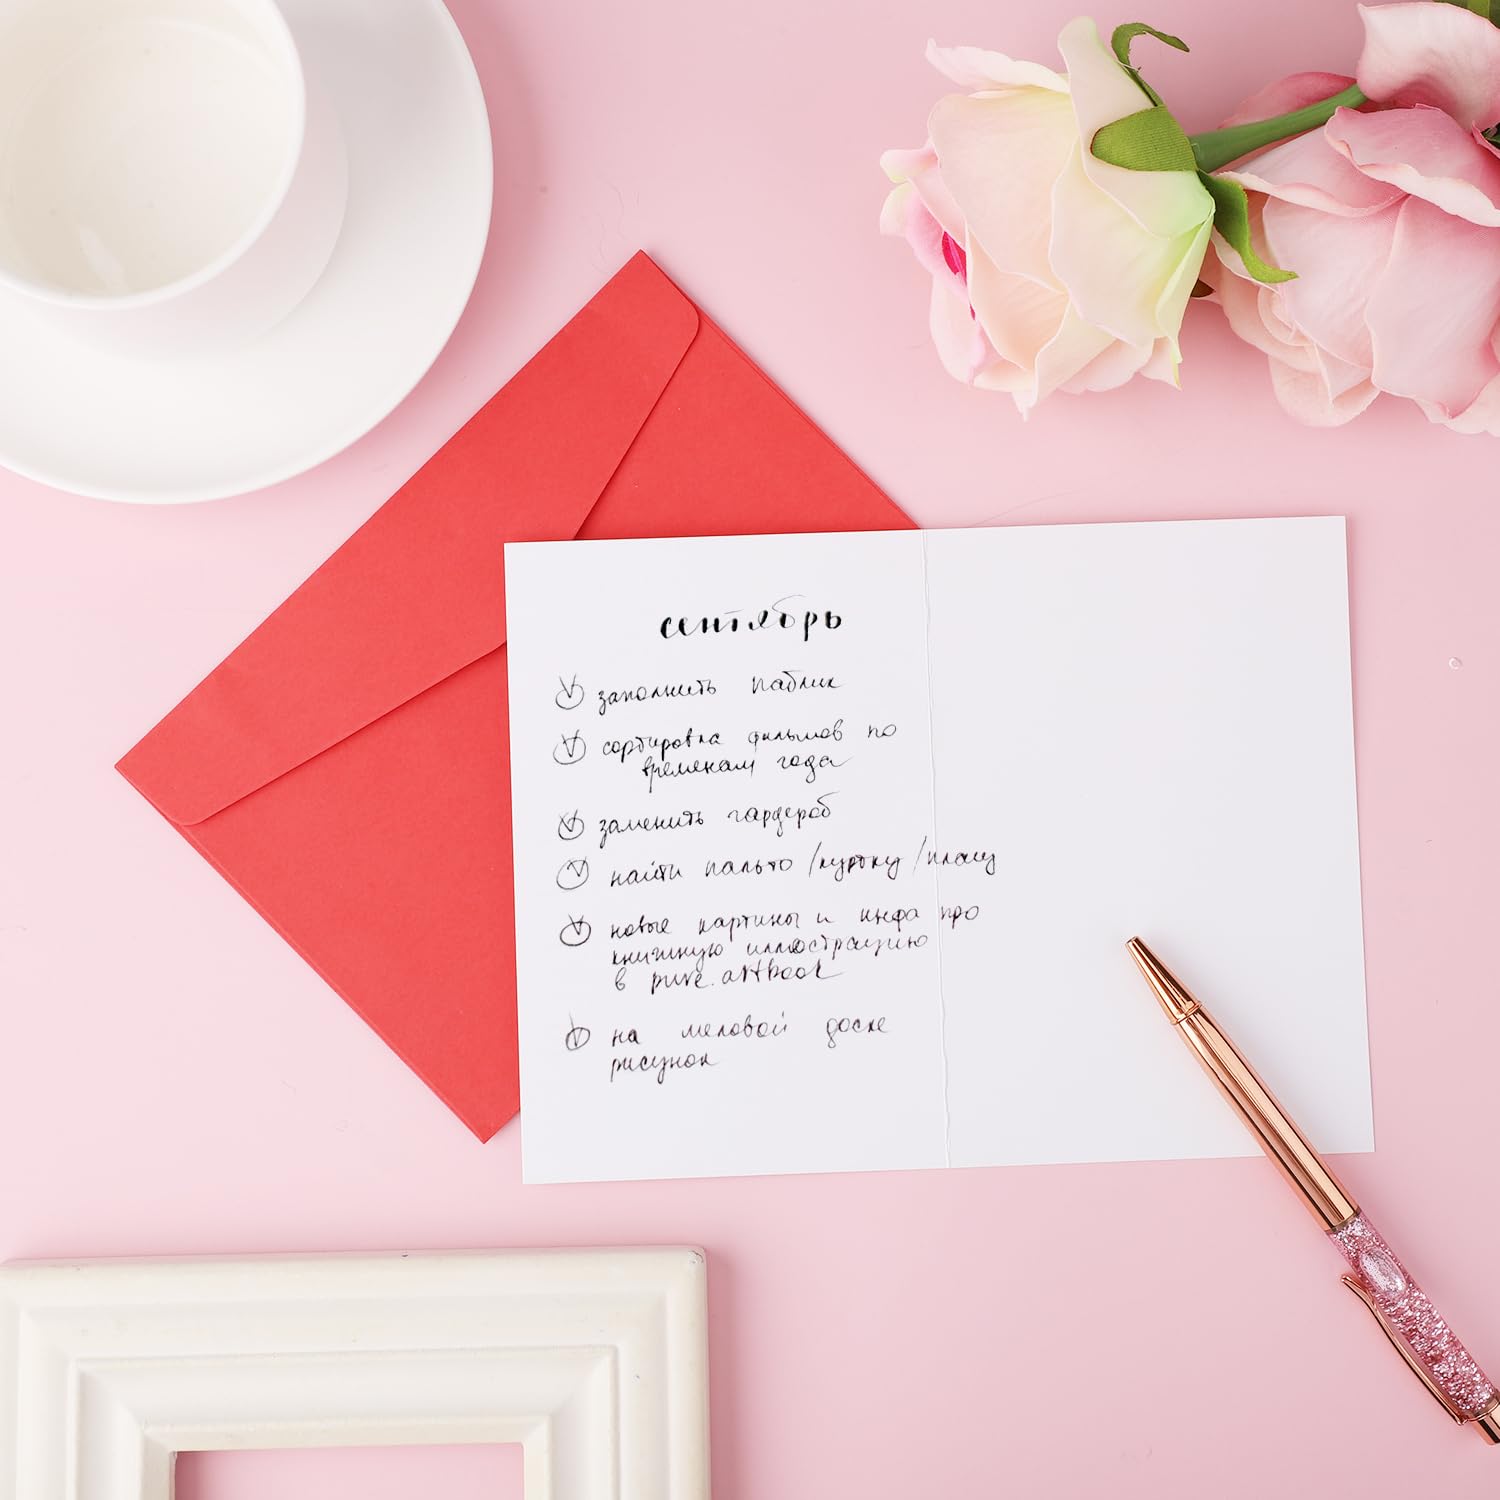 сентябрь
заполнить паблик
сортировка фильмов по
временам года
заменить гардероб
найти пальто /куртку /плащ
новые картины и инфа про
книжную иллюстрацию
в pure.artbook
на меловой доске
рисунок